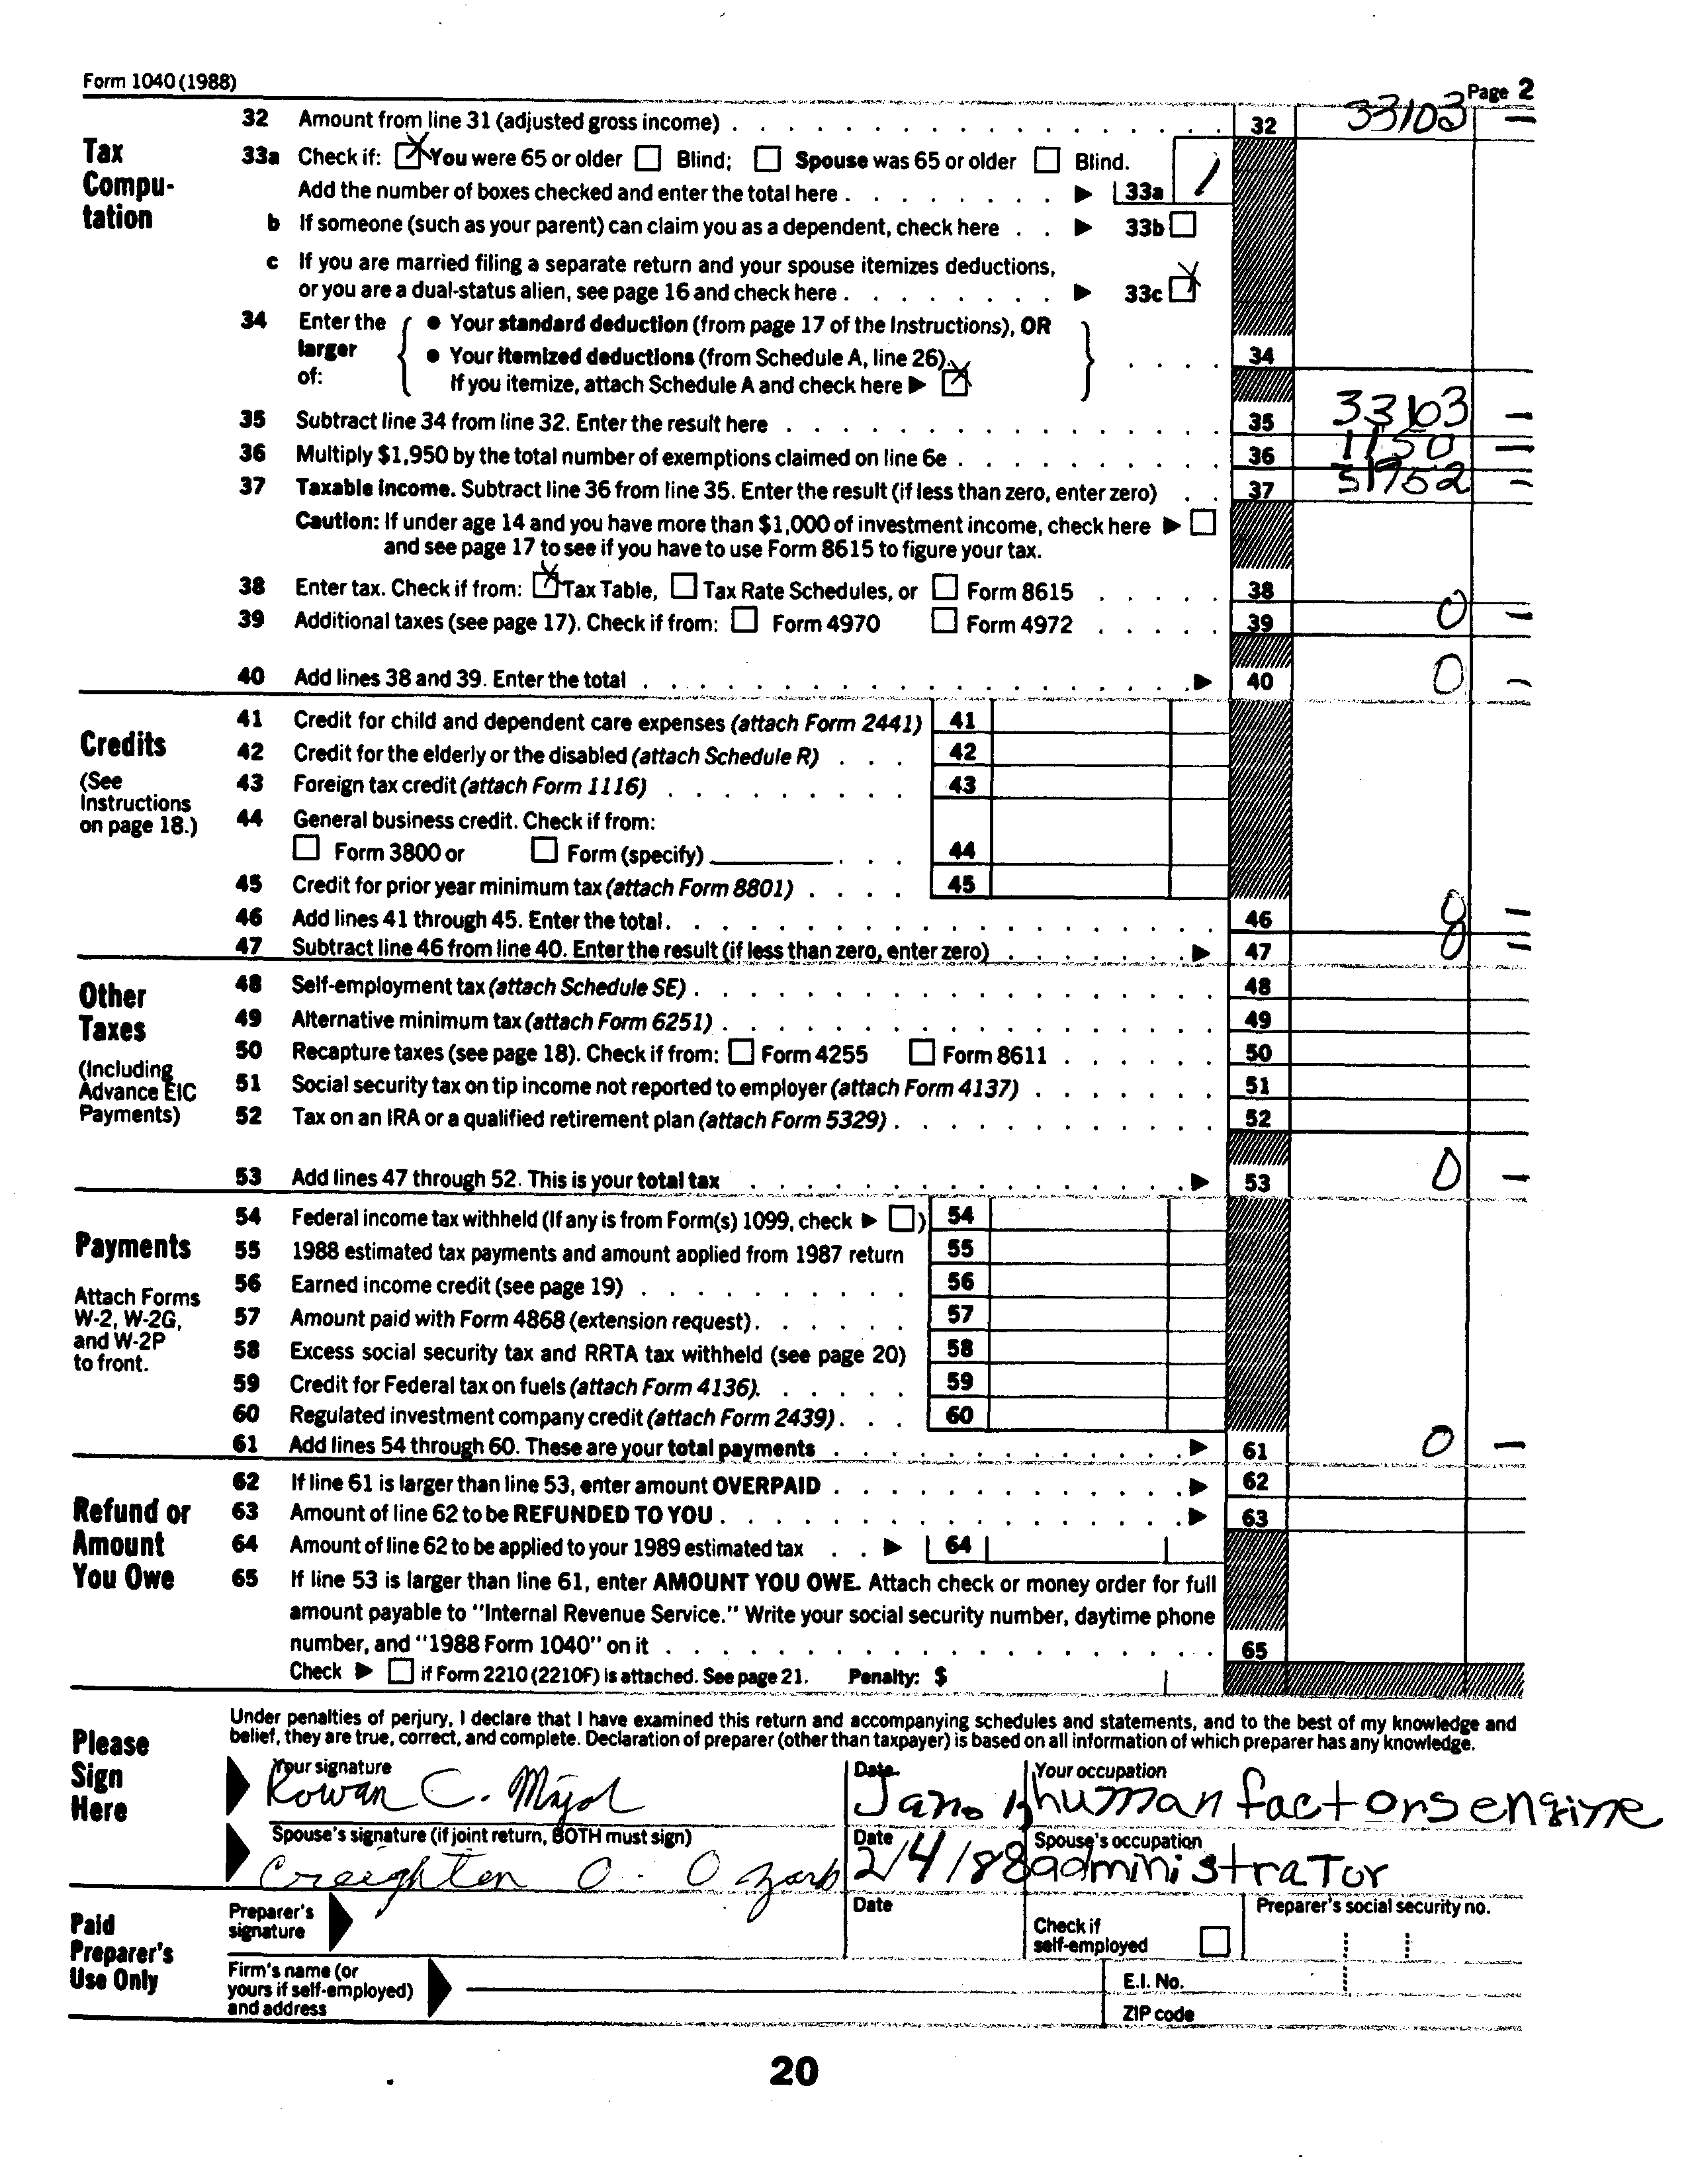 Form 1040 (1988) Page 2
32 Amount from line 31 (adjusted gross income) 32 33103 —
Tax Compu-tation
33a Check if: You were 65 or older Blind; Spouse was 65 or older Blind.
Add the number of boxes checked and enter the total here 33a 1
b If someone (such as your parent) can claim you as a dependent, check here 33b
c If you are married filing a separate return and your spouse itemizes deductions,
or you are a dual-status alien, see page 16 and check here 33c
34 Enter the larger of:
• Your standard deduction (from page 17 of the Instructions), OR
• Your itemized deductions (from Schedule A, line 26). 34
If you itemize, attach Schedule A and check here
35 Subtract line 34 from line 32. Enter the result here 35 33103 —
36 Multiply $1,950 by the total number of exemptions claimed on line 6e 36 1150 —
37 Taxable Income. Subtract line 36 from line 35. Enter the result (if less than zero, enter zero) 37 —
Caution: If under age 14 and you have more than $1,000 of investment income, check here
and see page 17 to see if you have to use Form 8615 to figure your tax.
38 Enter tax. Check if from: Tax Table, Tax Rate Schedules, or Form 8615 38
39 Additional taxes (see page 17). Check if from: Form 4970 Form 4972 39 0 —
40 Add lines 38 and 39. Enter the total 40 0 —
Credits
(See
Instructions
on page 18.)
41 Credit for child and dependent care expenses (attach Form 2441) 41
42 Credit for the elderly or the disabled (attach Schedule R) 42
43 Foreign tax credit (attach Form 1116) 43
44 General business credit. Check if from:
Form 3800 or Form (specify) 44
45 Credit for prior year minimum tax (attach Form 8801) 45
46 Add lines 41 through 45. Enter the total 46 0 —
47 Subtract line 46 from line 40. Enter the result (if less than zero, enter zero) 47 0 —
Other
Taxes
(Including
Advance EIC
Payments)
48 Self-employment tax (attach Schedule SE) 48
49 Alternative minimum tax (attach Form 6251) 49
50 Recapture taxes (see page 18). Check if from: Form 4255 Form 8611 50
51 Social security tax on tip income not reported to employer (attach Form 4137) 51
52 Tax on an IRA or a qualified retirement plan (attach Form 5329) 52
53 Add lines 47 through 52. This is your total tax 53 0 —
Payments
Attach Forms
W-2, W-2G,
and W-2P
to front.
54 Federal income tax withheld (If any is from Form(s) 1099, check ) 54
55 1988 estimated tax payments and amount applied from 1987 return 55
56 Earned income credit (see page 19) 56
57 Amount paid with Form 4868 (extension request) 57
58 Excess social security tax and RRTA tax withheld (see page 20) 58
59 Credit for Federal tax on fuels (attach Form 4136) 59
60 Regulated investment company credit (attach Form 2439) 60
61 Add lines 54 through 60. These are your total payments 61 0 —
Refund or
Amount
You Owe
62 If line 61 is larger than line 53, enter amount OVERPAID 62
63 Amount of line 62 to be REFUNDED TO YOU 63
64 Amount of line 62 to be applied to your 1989 estimated tax 64
65 If line 53 is larger than line 61, enter AMOUNT YOU OWE. Attach check or money order for full
amount payable to "Internal Revenue Service." Write your social security number, daytime phone
number, and "1988 Form 1040" on it 65
Check if Form 2210 (2210F) is attached. See page 21. Penalty: $
Please
Sign
Here
Under penalties of perjury, I declare that I have examined this return and accompanying schedules and statements, and to the best of my knowledge and
belief, they are true, correct, and complete. Declaration of preparer (other than taxpayer) is based on all information of which preparer has any knowledge.
Your signature Date Your occupation
Rowan C. Jan. human factors engine
Spouse's signature (if joint return, BOTH must sign) Date Spouse's occupation
Creighten O. Ozark 2/4/88 administrator
Paid
Preparer's
Use Only
Preparer's
signature
Date
Check if
self-employed
Preparer's social security no.
Firm's name (or
yours if self-employed)
and address
E.I. No.
ZIP code
20